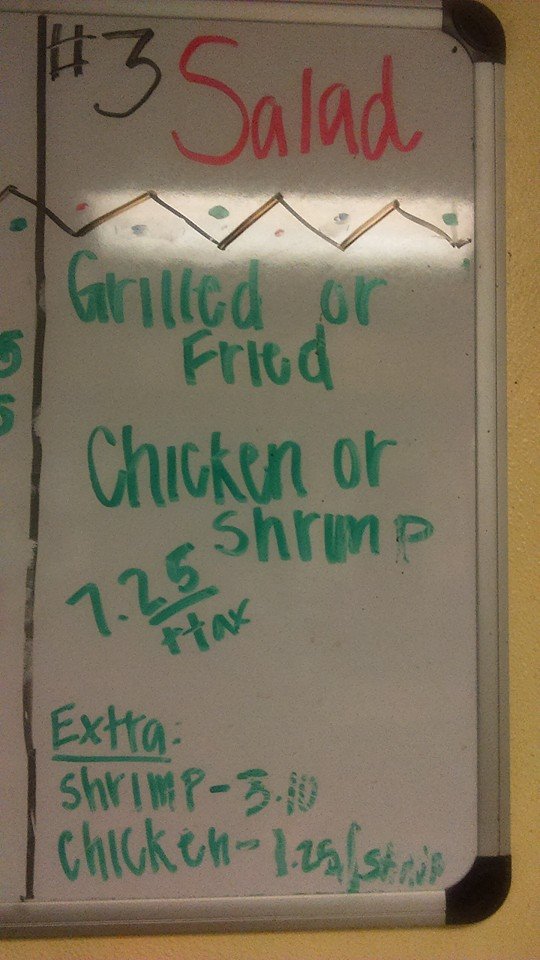 #3 Salad
Grilled or
Fried
Chicken or
Shrimp
7.25
+tax
Extra:
shrimp - 3.10
chicken - 1.25/strip